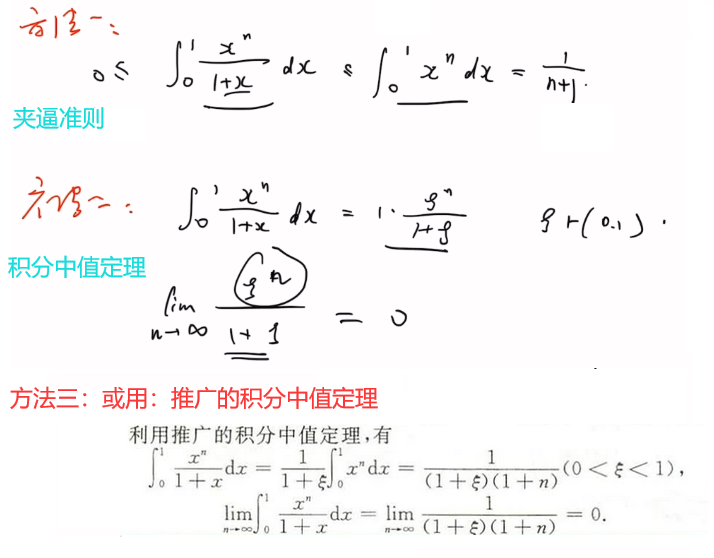 方法一：
0 ≤ ∫₀¹ xⁿ/(1+x) dx ≤ ∫₀¹ xⁿ dx = 1/(n+1).
夹逼准则
方法二：
∫₀¹ xⁿ/(1+x) dx = 1· ξⁿ/(1+ξ)　ξ∈(0,1).
积分中值定理
lim_{n→∞} ξⁿ/(1+ξ) = 0
方法三：或用：推广的积分中值定理
利用推广的积分中值定理,有
∫₀¹ xⁿ/(1+x) dx = 1/(1+ξ) ∫₀¹ xⁿ dx = 1/((1+ξ)(1+n)) (0<ξ<1),
lim_{n→∞} ∫₀¹ xⁿ/(1+x) dx = lim_{n→∞} 1/((1+ξ)(1+n)) = 0.